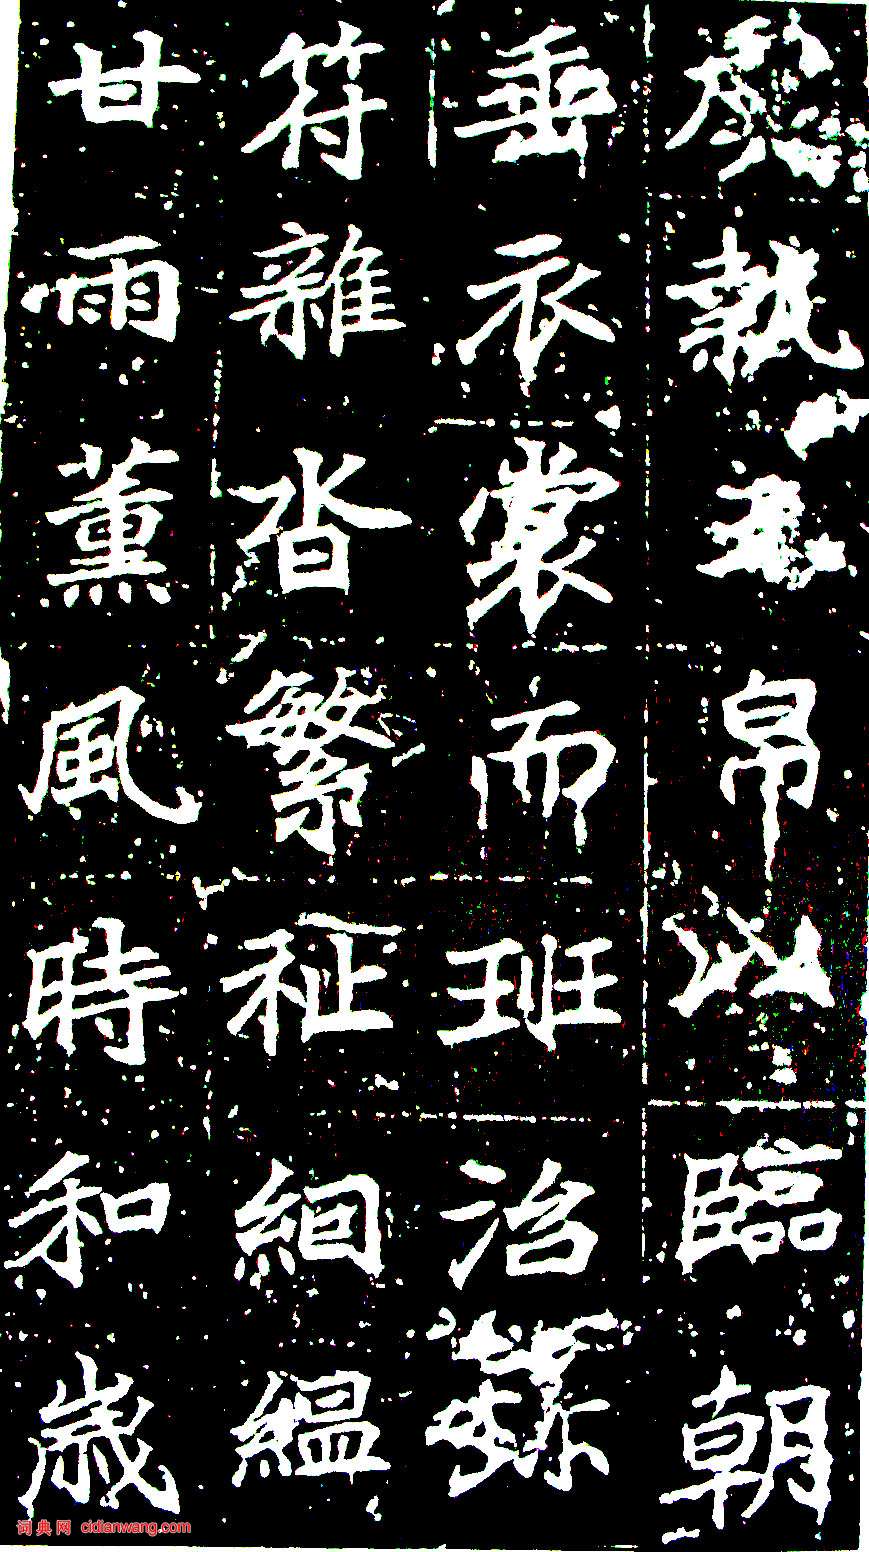 執玉帛以臨朝
垂衣裳而班治
符雜沓繁祉絪縕
甘雨薰風時和歲
词典网 cidianwang.com